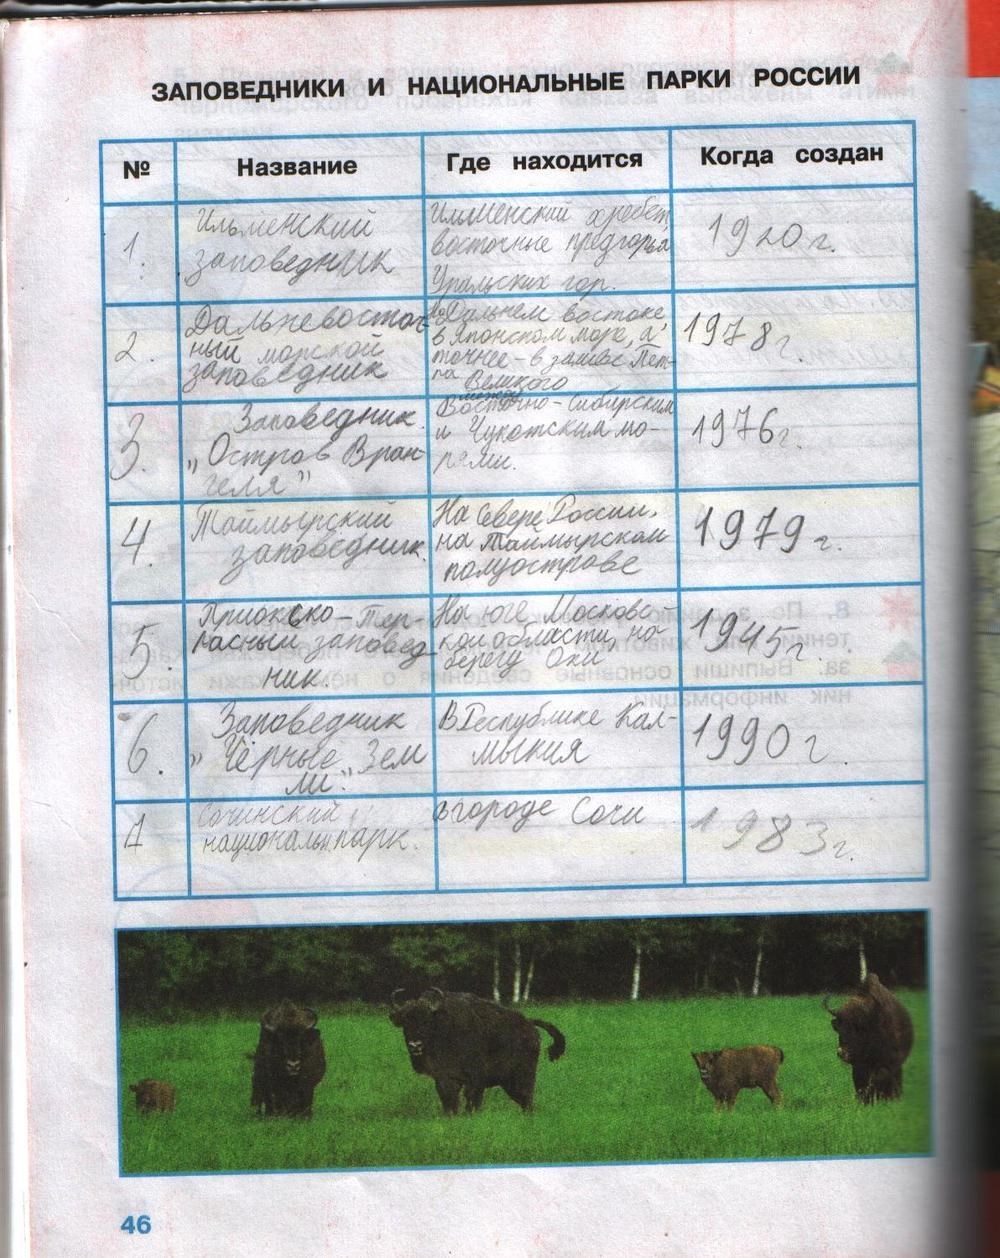 ЗАПОВЕДНИКИ И НАЦИОНАЛЬНЫЕ ПАРКИ РОССИИ
№ Название Где находится Когда создан
1. Ильменский заповедник
Ильменский хребет,
восточные предгорья
Уральских гор.
1920 г.
2. Дальневосточ-
ный морской
заповедник
На Дальнем востоке
в Японском море, а
точнее - в заливе Пет-
ра Великого
1978 г.
3. Заповедник
"Остров Вран-
геля"
между
Восточно-Сибирским
и Чукотским мо-
рями.
1976 г.
4. Таймырский
заповедник.
На севере России,
на Таймырском
полуострове
1979 г.
5. Приокско-Тер-
расный заповед-
ник.
На юге Московс-
кой области, на
берегу Оки,
1945 г.
6. Заповедник
"Чёрные Зем
ли".
В Республике Кал-
мыкия
1990 г.
7 Сочинский
национальн. парк.
в городе Сочи
1983 г.
46